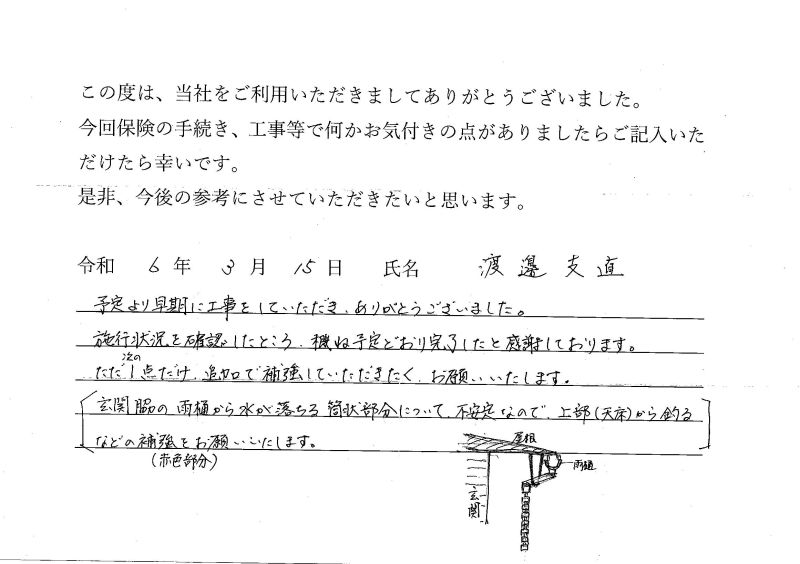 この度は、当社をご利用いただきましてありがとうございました。
今回保険の手続き、工事等で何かお気付きの点がありましたらご記入いた
だけたら幸いです。
是非、今後の参考にさせていただきたいと思います。
令和 6 年 3 月 15 日 氏名 渡邊 支直
予定より早期に工事をしていただき、ありがとうございました。
施行状況を確認したところ、概ね予定どおり完了したと感謝しております。
ただ次の1点だけ、追加で補強していただきたく、お願いいたします。
玄関脇の雨樋から水が落ちる筒状部分について、不安定なので、上部(天床)から釣る
などの補強をお願いいたします。
(赤色部分)
屋根
雨樋
玄関